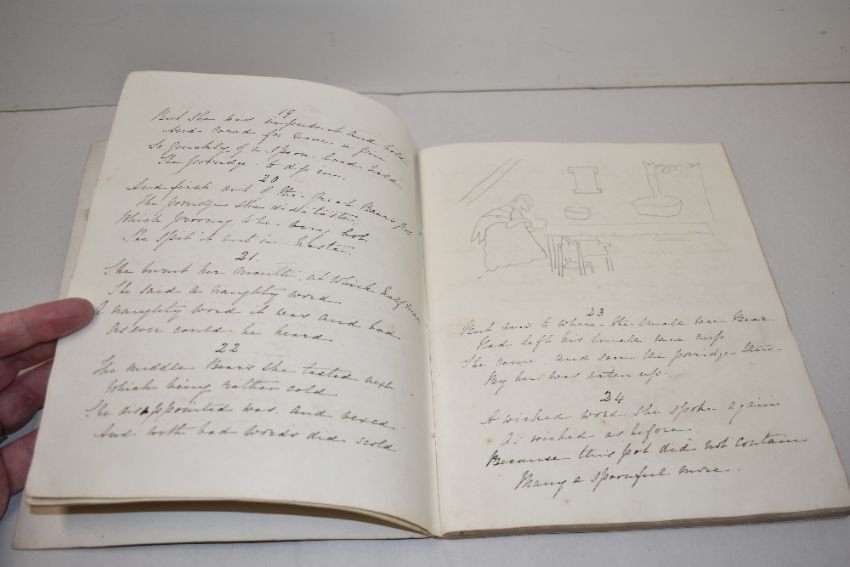 19
But she was impudent and bold
And cared for name a pin
So quickly of a spoon laid hold
The porridge to dip in.
20
And first out of the Great Bear's Pot
The Porridge she did taste
Which proving to be very hot
She spit it out in haste.
21.
She burnt her mouth, at which half
She said a naughty word
A naughty word it was and bad
As ever could be heard.
22
The Middle Bear's she tasted next
Which being rather cold
She disappointed was and vexed
And with bad words did scold
23
But now to where the Small wee Bear
Had left his Small wee cup
She came and soon the porridge there
By her was eaten up.
24
A wicked word she spoke again
As wicked as before
Because this pot did not contain
Many a spoonful more.